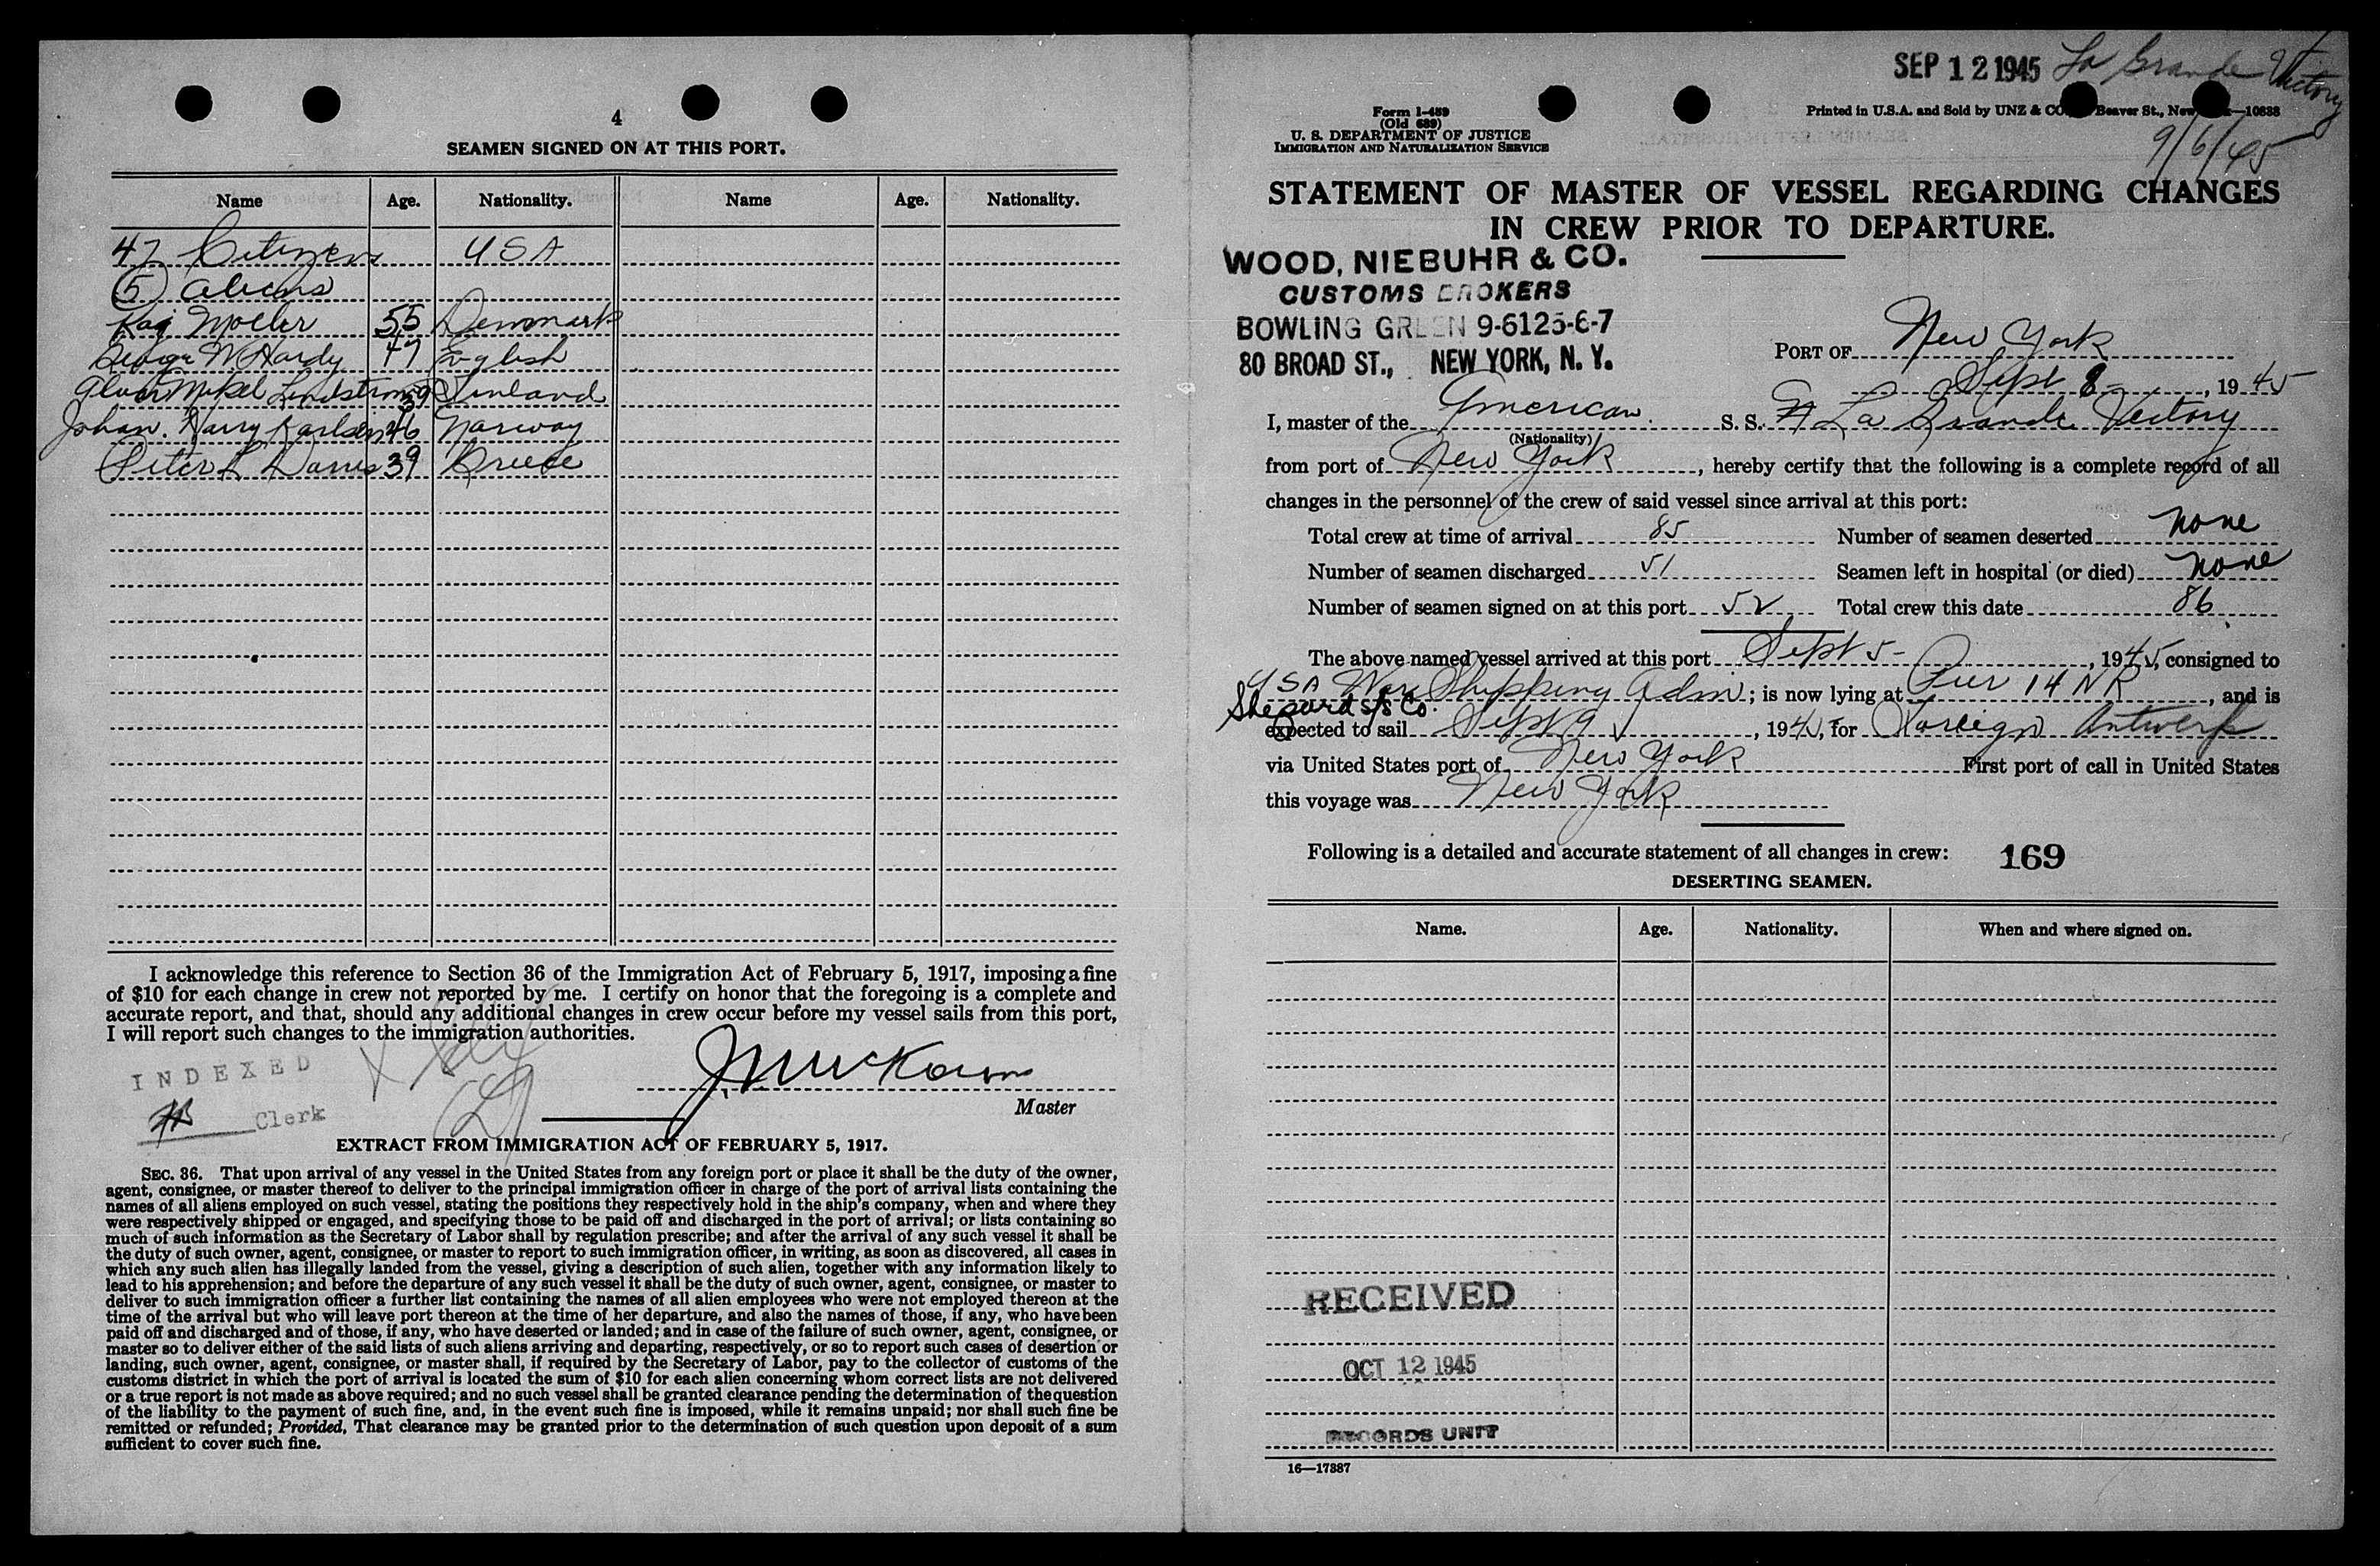 4
SEAMEN SIGNED ON AT THIS PORT.
Name Age. Nationality. Name Age. Nationality.
47 Citizens USA
5 aliens
Kaj Moller 55 Denmark
George W. Hardy 47 English
Mikel Lindstrom 39 Finland
Johan. Harry Karlsen 46 Norway
Peter L 39 Greece
I acknowledge this reference to Section 36 of the Immigration Act of February 5, 1917, imposing a fine
of $10 for each change in crew not reported by me. I certify on honor that the foregoing is a complete and
accurate report, and that, should any additional changes in crew occur before my vessel sails from this port,
I will report such changes to the immigration authorities.
INDEXED
Clerk
Master
EXTRACT FROM IMMIGRATION ACT OF FEBRUARY 5, 1917.
SEC. 36. That upon arrival of any vessel in the United States from any foreign port or place it shall be the duty of the owner,
agent, consignee, or master thereof to deliver to the principal immigration officer in charge of the port of arrival lists containing the
names of all aliens employed on such vessel, stating the positions they respectively hold in the ship's company, when and where they
were respectively shipped or engaged, and specifying those to be paid off and discharged in the port of arrival; or lists containing so
much of such information as the Secretary of Labor shall by regulation prescribe; and after the arrival of any such vessel it shall be
the duty of such owner, agent, consignee, or master to report to such immigration officer, in writing, as soon as discovered, all cases in
which any such alien has illegally landed from the vessel, giving a description of such alien, together with any information likely to
lead to his apprehension; and before the departure of any such vessel it shall be the duty of such owner, agent, consignee, or master to
deliver to such immigration officer a further list containing the names of all alien employees who were not employed thereon at the
time of the arrival but who will leave port thereon at the time of her departure, and also the names of those, if any, who have been
paid off and discharged and of those, if any, who have deserted or landed; and in case of the failure of such owner, agent, consignee, or
master so to deliver either of the said lists of such aliens arriving and departing, respectively, or so to report such cases of desertion or
landing, such owner, agent, consignee, or master shall, if required by the Secretary of Labor, pay to the collector of customs of the
customs district in which the port of arrival is located the sum of $10 for each alien concerning whom correct lists are not delivered
or a true report is not made as above required; and no such vessel shall be granted clearance pending the determination of the question
of the liability to the payment of such fine, and, in the event such fine is imposed, while it remains unpaid; nor shall such fine be
remitted or refunded; Provided, That clearance may be granted prior to the determination of such question upon deposit of a sum
sufficient to cover such fine.
SEP 12 1945 La Grande Victory
9/6/45
Form I-489
(Old 689)
U. S. DEPARTMENT OF JUSTICE
IMMIGRATION AND NATURALIZATION SERVICE
Printed in U.S.A. and Sold by UNZ & CO. Beaver St., New —10838
STATEMENT OF MASTER OF VESSEL REGARDING CHANGES
IN CREW PRIOR TO DEPARTURE.
WOOD, NIEBUHR & CO.
CUSTOMS BROKERS
BOWLING GREEN 9-6125-6-7
80 BROAD ST., NEW YORK, N. Y.
PORT OF New York
Sept 8-, 1945
I, master of the American S. S. La Grande Victory
(Nationality)
from port of New York, hereby certify that the following is a complete record of all
changes in the personnel of the crew of said vessel since arrival at this port:
Total crew at time of arrival 85 Number of seamen deserted none
Number of seamen discharged 51 Seamen left in hospital (or died) none
Number of seamen signed on at this port 52 Total crew this date 86
The above named vessel arrived at this port Sept 5-, 1945, consigned to
USA War Shipping Adm; is now lying at Pier 14 NR, and is
Shepard S/S Co.
expected to sail Sept 9, 1945, for Foreign Antwerp
via United States port of New York First port of call in United States
this voyage was New York
Following is a detailed and accurate statement of all changes in crew: 169
DESERTING SEAMEN.
Name. Age. Nationality. When and where signed on.
RECEIVED
OCT 12 1945
RECORDS UNIT
16—17387